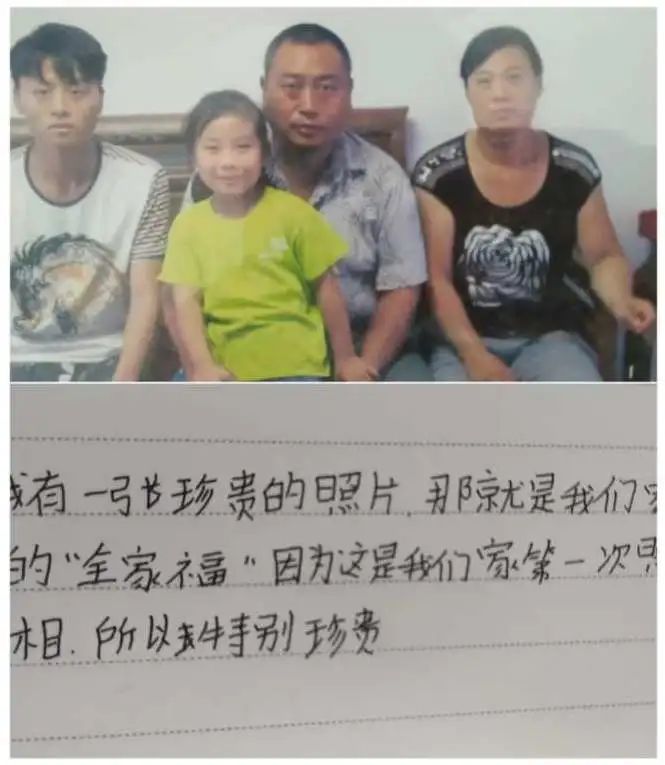 我有一张珍贵的照片,那就是我们家
的"全家福"因为这是我们家第一次照
相.所以特别珍贵